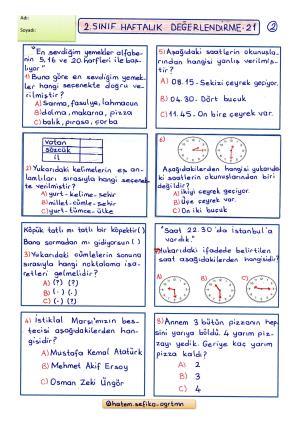 Adı:
Soyadı:
2.SINIF HAFTALIK DEĞERLENDİRME-21
2
"En sevdiğim yemekler alfabe-
nin 5,16 ve 20.harfleri ile baş-
lıyor"
1) Buna göre en sevdiğim yemek-
ler hangi seçenekte doğru ve-
rilmiştir?
A) Sarma, fasulye, lahmacun
B) dolma, makarna, pizza
C) balık, pırasa, çorba
vatan
sözcük
il
2) Yukarıdaki kelimelerin eş an-
lamlıları sırasıyla hangi seçenek-
te verilmiştir?
A) yurt-kelime-şehir
B) millet-cümle-şehir
C) yurt-tümce-ülke
Köpük tatlı mı tatlı bir köpektir( )
Bana sormadan mı gidiyorsun ( )
3) Yukarıdaki cümlelerin sonuna
sırasıyla hangi noktalama işa-
retleri gelmelidir?
A) (?) (?)
B) (.) (.)
C) (.) (?)
4) İstiklal Marşı'mızın bes-
tecisi aşağıdakilerden han-
gisidir?
A) Mustafa Kemal Atatürk
B) Mehmet Akif Ersoy
C) Osman Zeki Üngör
5) Aşağıdaki saatlerin okunuşla-
rından hangisi yanlış verilmiş-
tir?
A) 08.15- Sekizi çeyrek geçiyor.
B) 04.30- Dört buçuk
C) 11.45- On bire çeyrek var.
6)
Aşağıdakilerden hangisi yukarıda-
ki saatlerin okunuşlarından biri
değildir?
A) İkiyi çeyrek geçiyor.
B) Üçe çeyrek var.
C) On iki buçuk
"Saat 22.30'da İstanbul'a
vardık."
7) Yukarıdaki ifadede belirtilen
saat aşağıdakilerden hangisidir?
A)
B)
C)
8) Annem 3 bütün pizzanın hep-
sini yarıya böldü. 4 yarım piz-
zayı yedik. Geriye kaç yarım
pizza kaldı?
A) 2
B) 3
C) 4
@hatem.sefika-ogrtmn